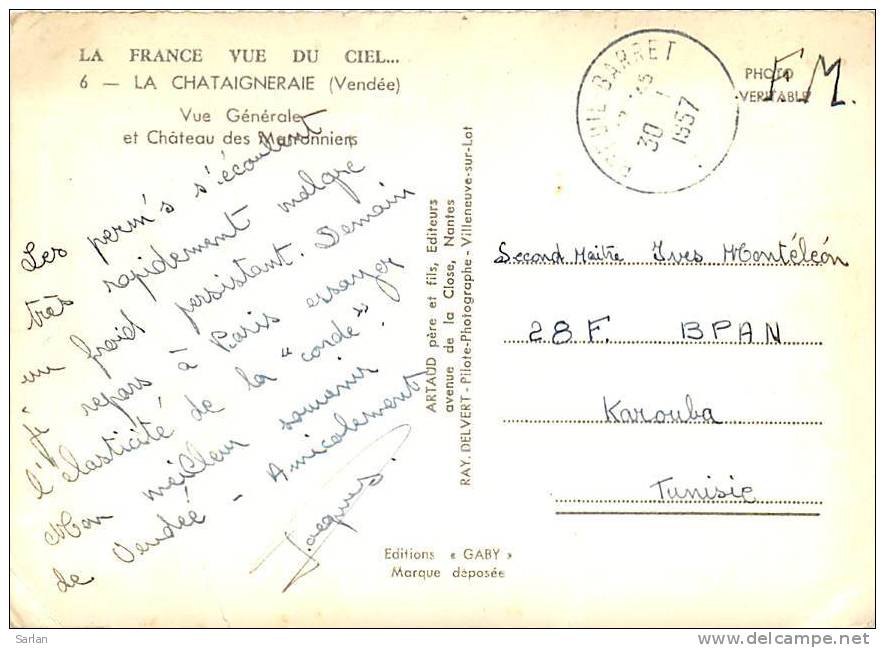 LA FRANCE VUE DU CIEL...
6 — LA CHATAIGNERAIE (Vendée)
Vue Générale
et Château des Marronniers
Les perm's s'écoulent
très rapidement malgré
un froid persistant. Demain
je repars à Paris essayer
l'élasticité de la "corde".
Mon meilleur souvenir
de Vendée - Amicalement
Jacques.
ARTAUD père et fils, Editeurs
avenue de la Close, Nantes
RAY. DELVERT - Pilote-Photographe - Villeneuve-sur-Lot
Editions « GABY »
Marque déposée
BREUIL BARRET
30 1
1957
PHOTO
VERITABLE
F.M.
Second Maître Yves Montéléon
28F. BPAN
Karouba
Tunisie
Sarlan
www.delcampe.net